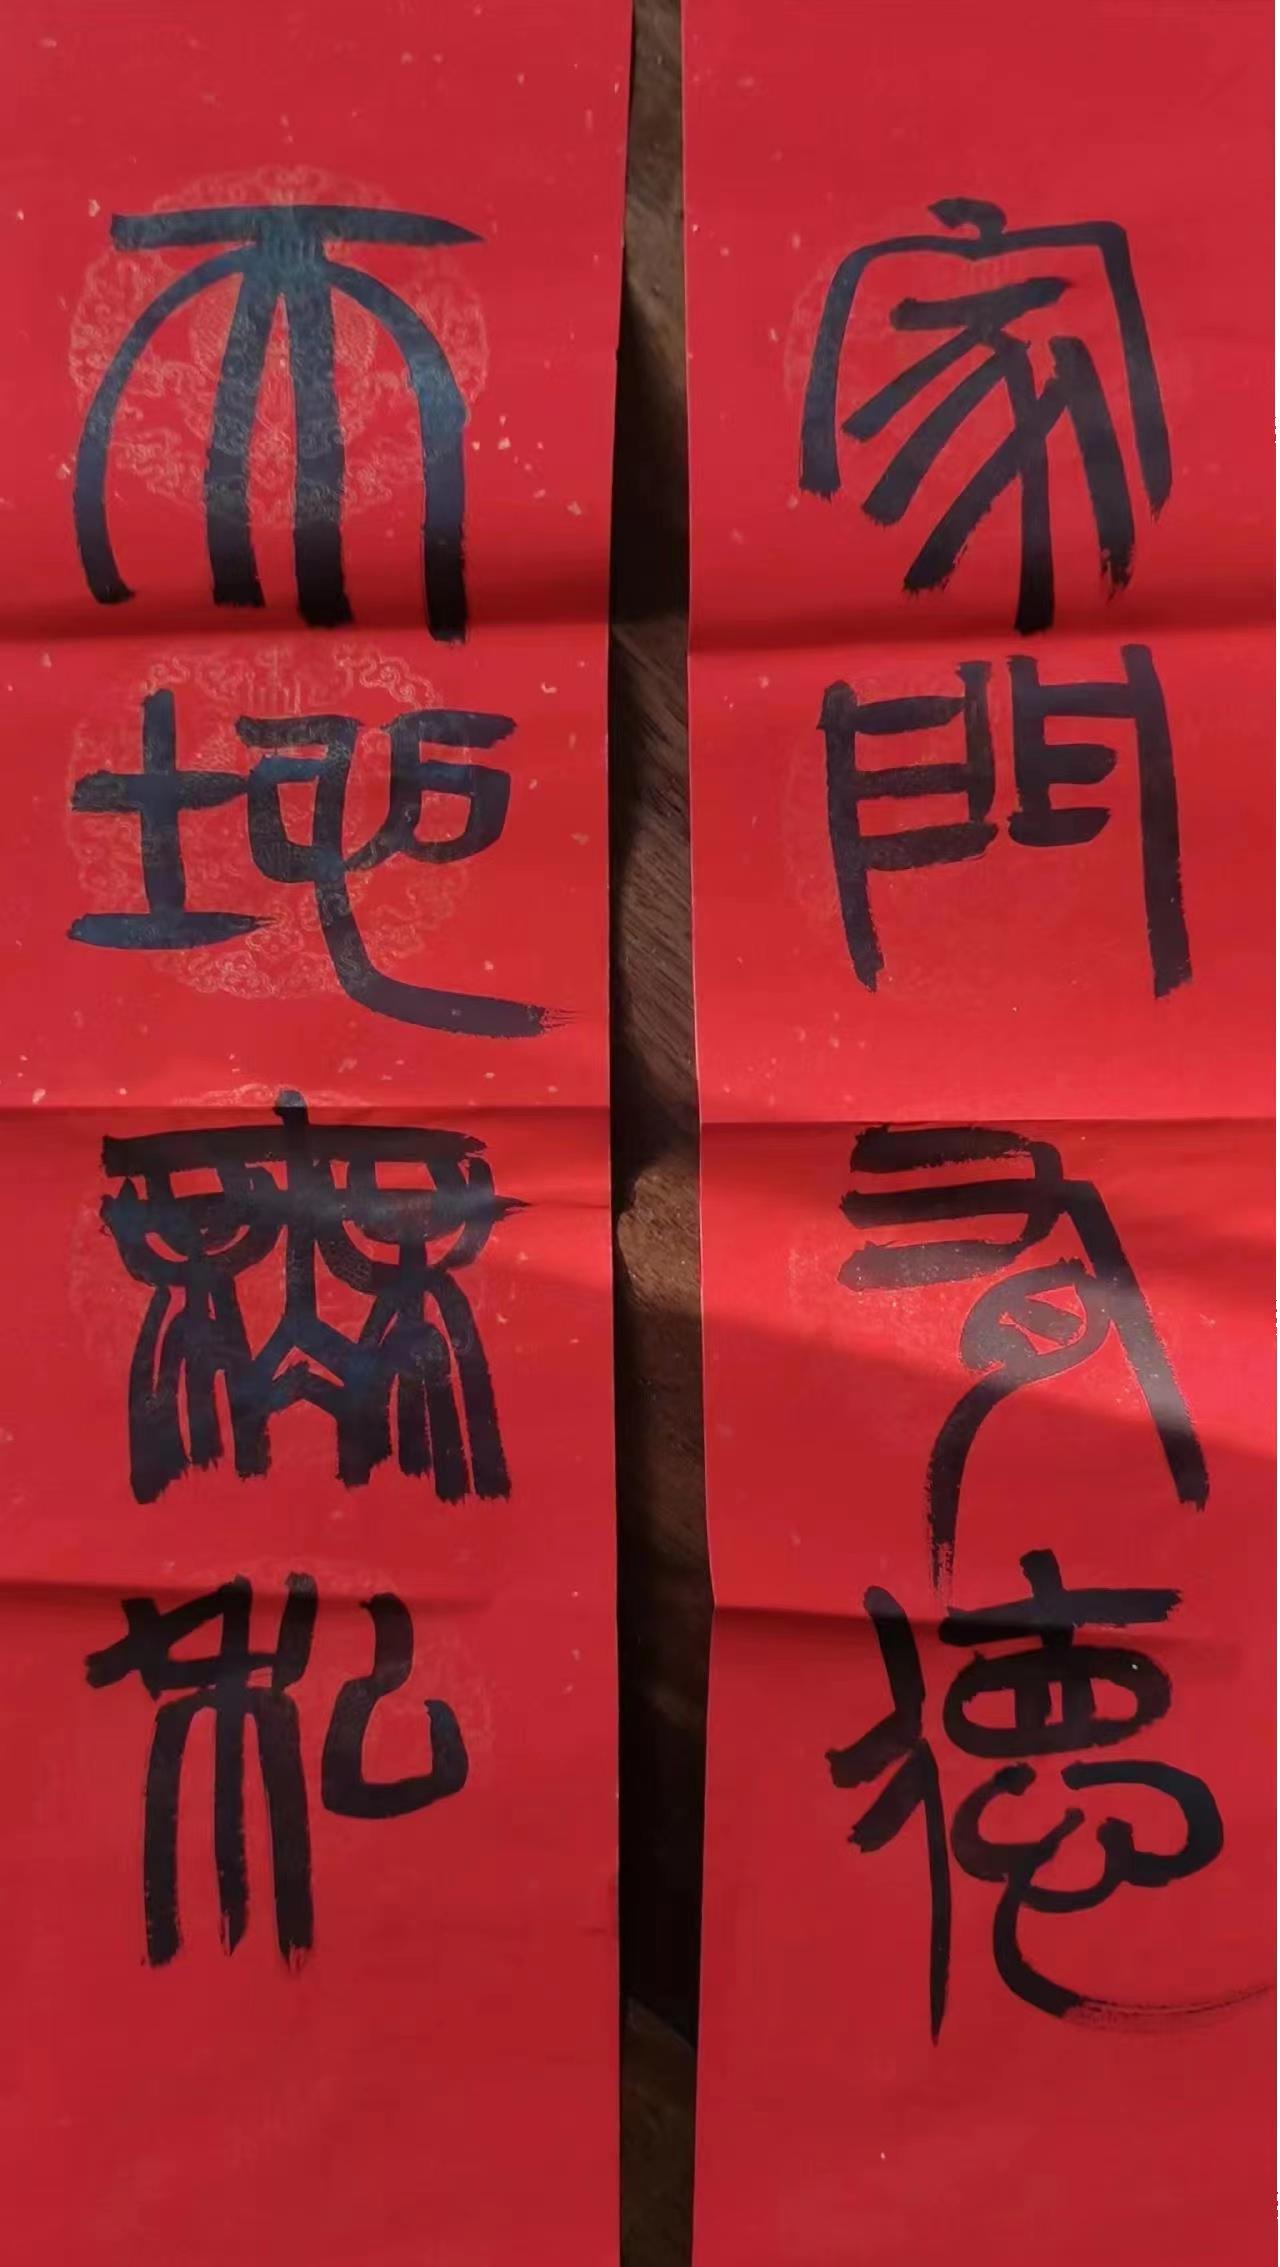 家門有德
天地無私